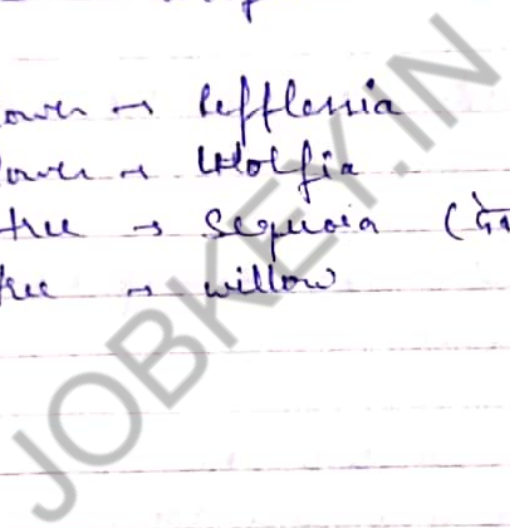 ower → Refflessia
lower → Wolfia
tree → Sequoia (
tree → willow
JOBKEY.IN